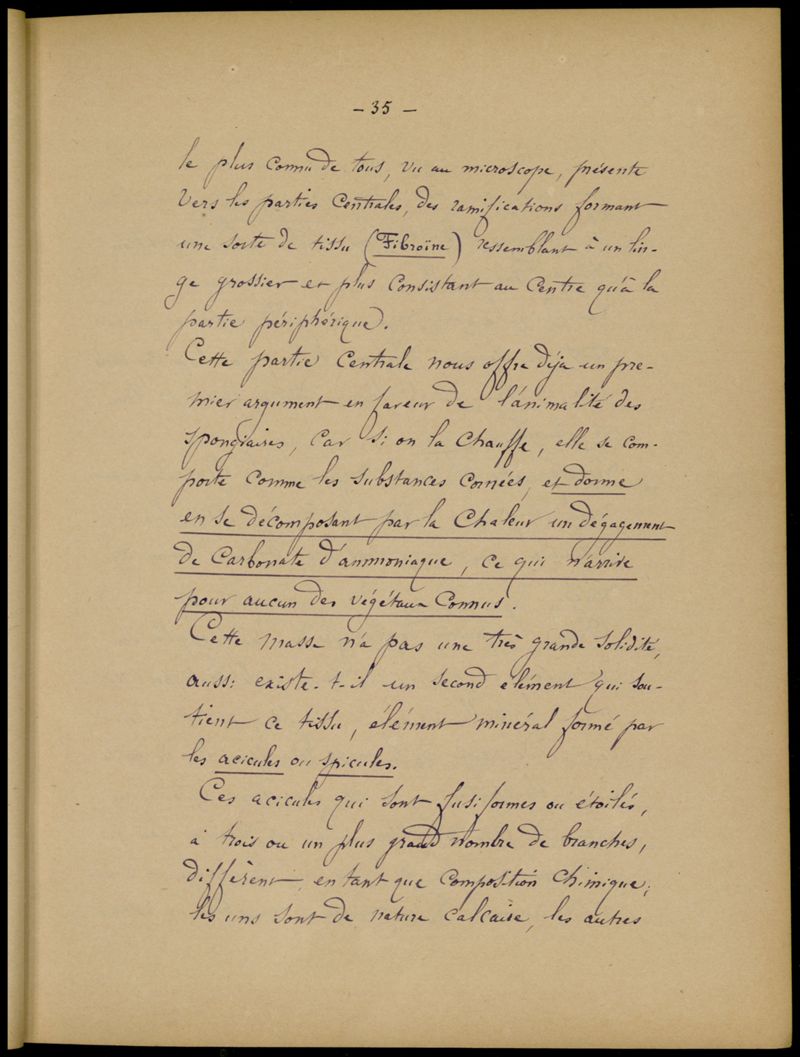 - 35 -
le plus connu de tous, vu au microscope, présente
vers les parties centrales, des ramifications formant
une sorte de tissu (Fibroïne) ressemblant à un lin-
ge grossier et plus consistant au centre qu'à la
partie périphérique.
Cette partie centrale nous offre déja un pre-
mier argument en faveur de l'animalité des
spongiaires, car si on la chauffe, elle se com-
porte comme les substances cornées, et donne
en se décomposant par la chaleur un dégagement
de carbonate d'ammoniaque, ce qui n'arrive
pour aucun des végétaux connus.
Cette masse n'a pas une très grande solidité,
aussi existe-t-il un second élément qui sou-
tient ce tissu, élément minéral formé par
les acicules ou spicules.
Ces acicules qui sont fusiformes ou étoilés,
à trois ou un plus grand nombre de branches,
diffèrent, en tant que composition chimique;
les uns sont de nature calcaire, les autres